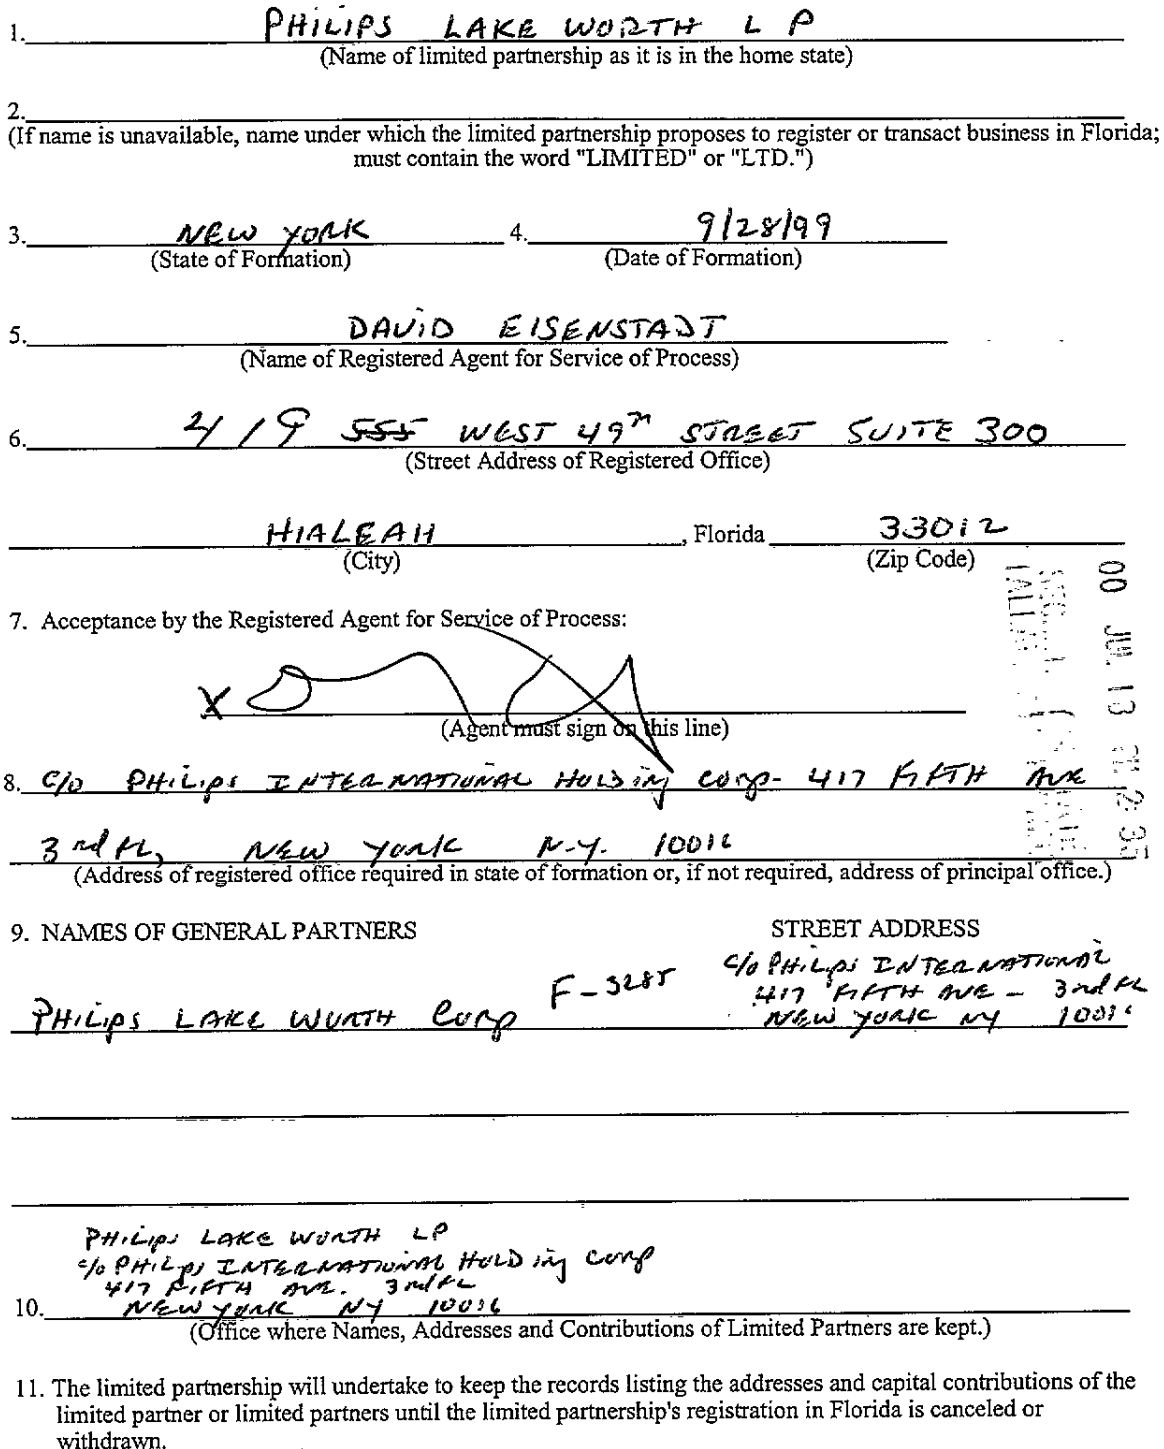 1. PHILIPS LAKE WORTH L P
(Name of limited partnership as it is in the home state)
2.
(If name is unavailable, name under which the limited partnership proposes to register or transact business in Florida;
must contain the word "LIMITED" or "LTD.")
3. NEW YORK 4. 9/28/99
(State of Formation) (Date of Formation)
5. DAVID EISENSTADT
(Name of Registered Agent for Service of Process)
6. 419 555 WEST 49TH STREET SUITE 300
(Street Address of Registered Office)
HIALEAH , Florida 33012
(City) (Zip Code)
7. Acceptance by the Registered Agent for Service of Process:
X
(Agent must sign on this line)
8. C/O PHILIPS INTERNATIONAL HOLDING CORP- 417 FIFTH AVE
3rd FL, NEW YORK N.Y. 10016
(Address of registered office required in state of formation or, if not required, address of principal office.)
9. NAMES OF GENERAL PARTNERS STREET ADDRESS
PHILIPS LAKE WORTH CORP F-3285
C/O PHILIPS INTERNATIONAL
417 FIFTH AVE - 3rd FL
NEW YORK NY 10016
PHILIPS LAKE WORTH LP
C/O PHILIPS INTERNATIONAL HOLDING CORP
417 FIFTH AVE. 3rd FL
10. NEW YORK NY 10016
(Office where Names, Addresses and Contributions of Limited Partners are kept.)
11. The limited partnership will undertake to keep the records listing the addresses and capital contributions of the
limited partner or limited partners until the limited partnership's registration in Florida is canceled or
withdrawn.
00 JUL 13 PM 12:35